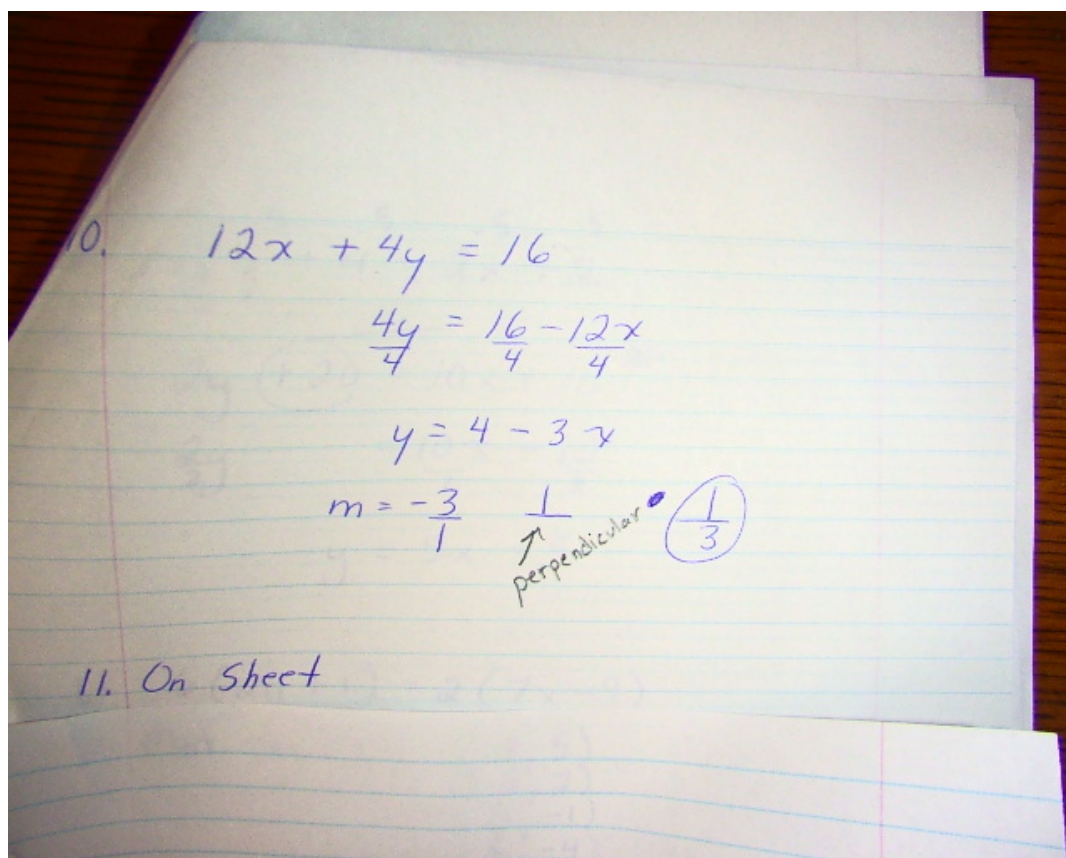 10. 12x + 4y = 16
4y/4 = 16/4 - 12x/4
y = 4 - 3x
m = -3/1 ⊥ 1/3
↑ perpendicular
11. On Sheet